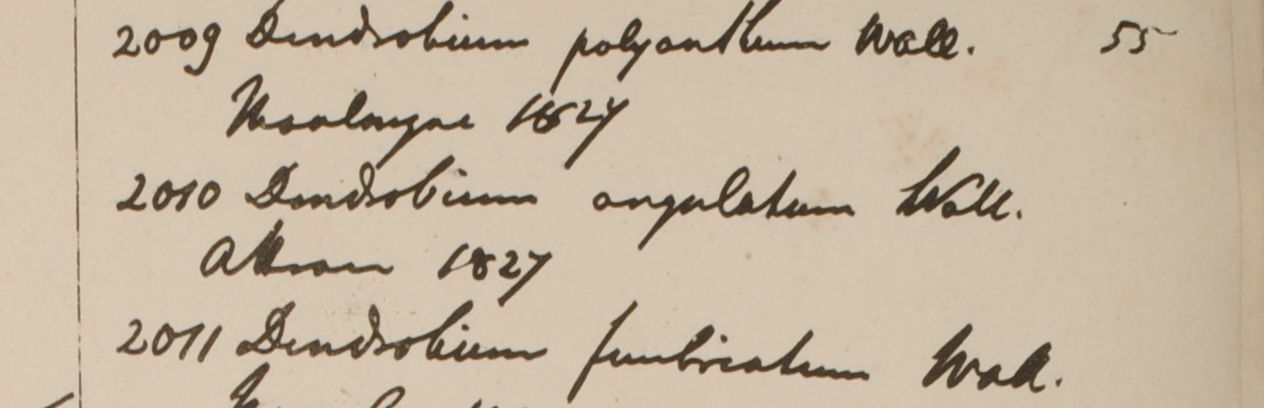 2009 Dendrobium polyanthum Wall. 55
Moalmyne 1827
2010 Dendrobium angulatum Wall.
Attran 1827
2011 Dendrobium fimbriatum Wall.